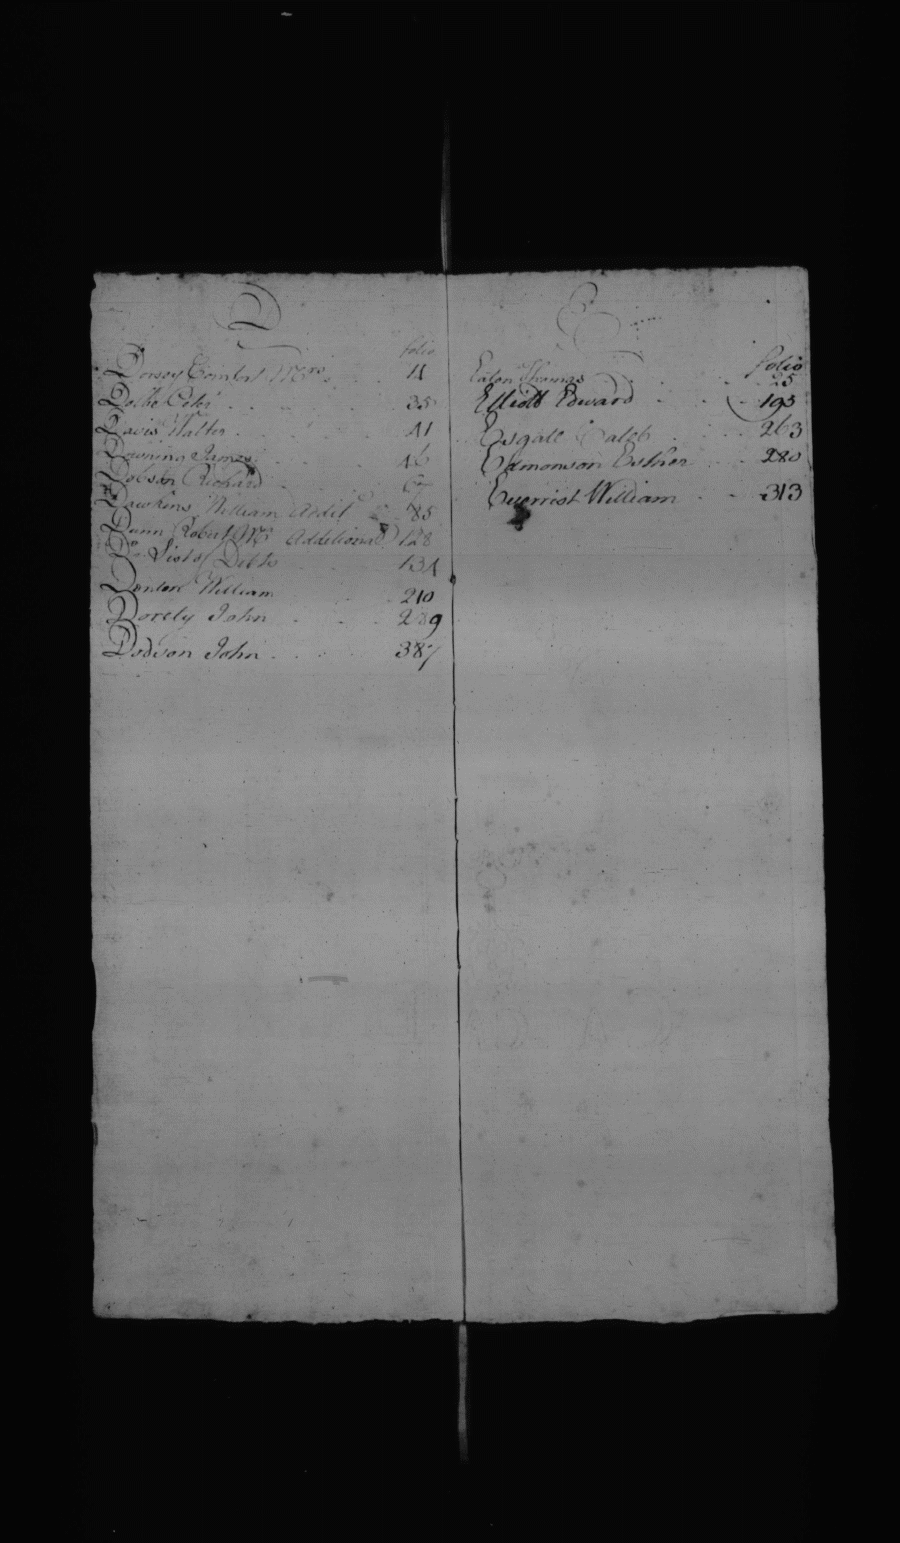 D
folio
Dorsey Comfort Mrs 11
Peter 35
Davis Walter 41
Downing James 46
Dobson Richard
Dawkins William Addil 85
Dunn Robert Mr Additional 128
Do List of Debts 134
Denton William 210
Dorety John 289
Dodson John 387
E
folio
Eaton Thomas 25
Elliott Edward 195
Esgate Caleb 263
Edmonson Esther 280
Everrist William 313